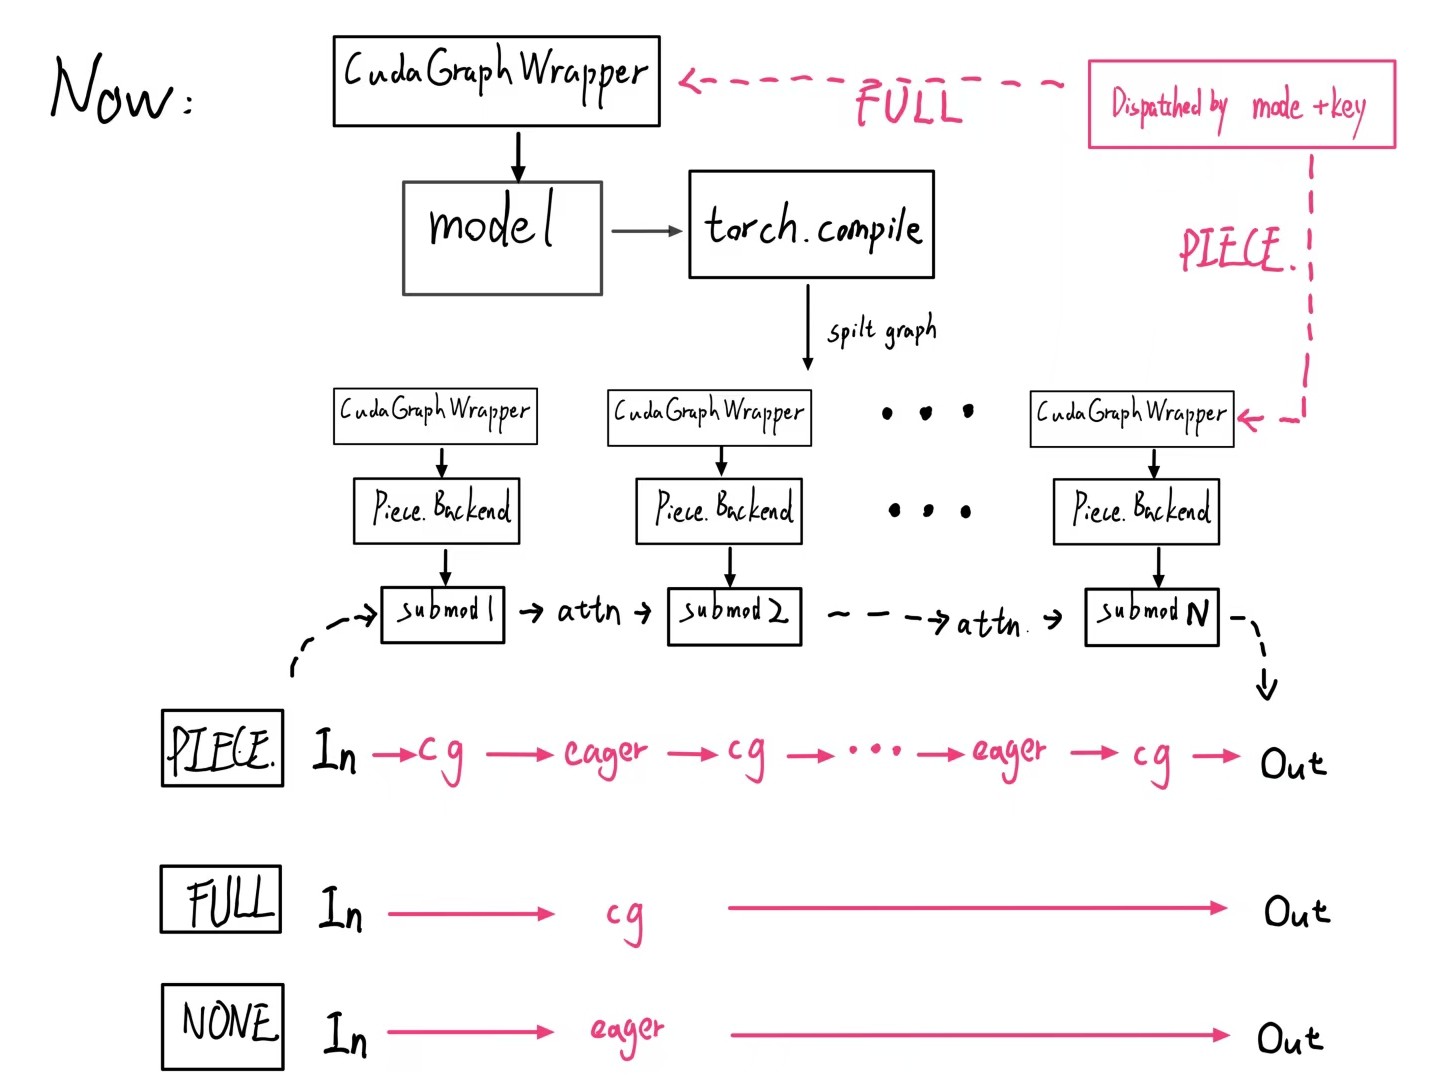 Now:
CudaGraphWrapper
FULL
Dispatched by mode +key
model
torch.compile
PIECE.
spilt graph
CudaGraphWrapper
CudaGraphWrapper
CudaGraphWrapper
Piece. Backend
Piece. Backend
Piece. Backend
submod 1
attn
submod 2
attn.
submod N
PIECE.
In
cg
eager
cg
eager
cg
Out
FULL
In
cg
Out
NONE
In
eager
Out